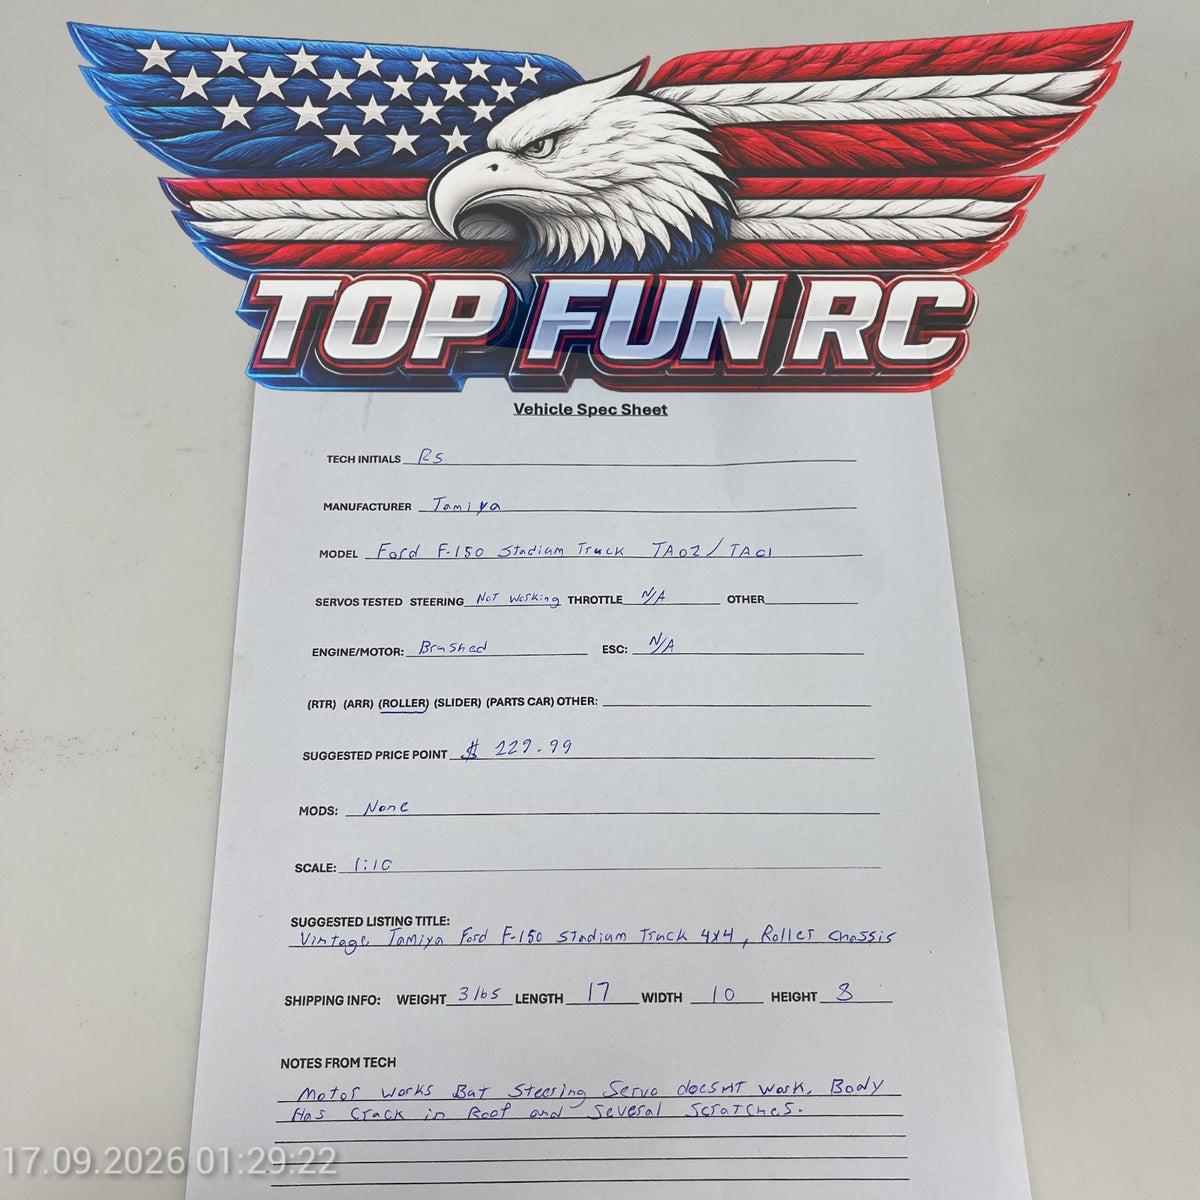 TOP FUN RC
Vehicle Spec Sheet
TECH INITIALS RS
MANUFACTURER Tamiya
MODEL Ford F-150 Stadium Truck TA02/TA01
SERVOS TESTED STEERING Not Working THROTTLE N/A OTHER
ENGINE/MOTOR: Brushed ESC: N/A
(RTR) (ARR) (ROLLER) (SLIDER) (PARTS CAR) OTHER:
SUGGESTED PRICE POINT $ 229.99
MODS: None
SCALE: 1:10
SUGGESTED LISTING TITLE:
Vintage Tamiya Ford F-150 Stadium Truck 4x4, Roller Chassis
SHIPPING INFO: WEIGHT 3 lbs LENGTH 17 WIDTH 10 HEIGHT 8
NOTES FROM TECH
Motor works But Steering Servo doesnt work. Body
Has Crack in Roof and Several Scratches.
17.09.2026 01:29:22